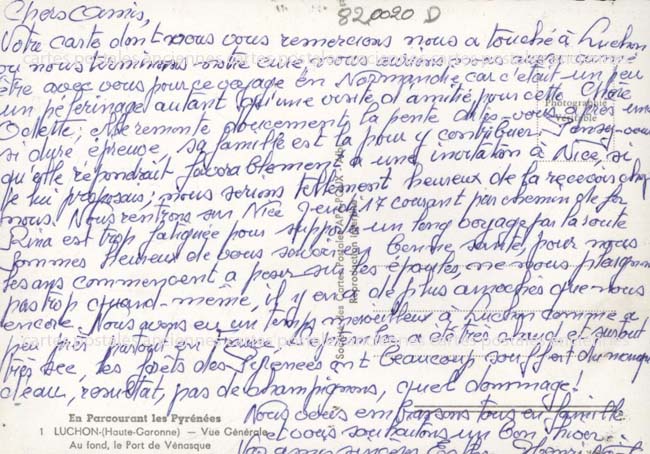 Chers amis,
820020 D
Votre carte dont nous vous remercions nous a touché à Luchon
où nous terminons notre cure; nous aurions
être avec vous pour ce voyage en Normandie, car c'était un peu
un pèlerinage autant qu'une visite d'amitié pour cette Chère
Odette; remonte doucement la pente dites-vous après une
si dure épreuve, sa famille est là pour y contribuer. Pensez-vous
qu'elle répondrait favorablement à une invitation à Nice, si
je lui proposais; nous serions tellement heureux de la recevoir chez
nous. Nous rentrons sur Nice Jeudi 17 courant par chemin de fer
Rina est trop fatiguée pour supporter un long voyage par la route
Sommes heureux de vous savoir en bonne santé, pour nous
les ans commencent à peser sur les épaules, ne nous plaignons
pas trop quand-même, il y en a de plus amochés que nous
encore. Nous avons eu un temps merveilleux à Luchon comme à
peu près partout en a été très chaud et surtout
très sec, les forêts des Pyrénées ont beaucoup souffert du manque
d'eau, résultat, pas de champignons, quel dommage!
Nous vous embrassons tous en famille
et vous souhaitons un bon hiver
Vos amis sincères
Photographie
Véritable
cartes postales anciennes
En Parcourant les Pyrénées
1 LUCHON-(Haute-Garonne) — Vue Générale
Au fond, le Port de Vénasque